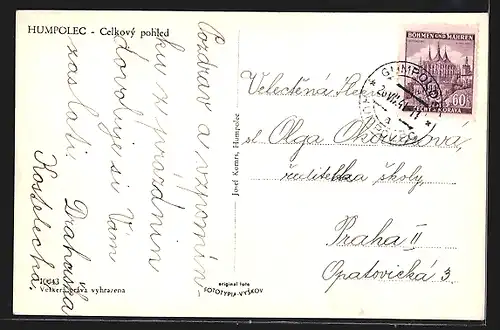 HUMPOLEC - Celkový pohled
Pozdrav a vzpomín-
ku z prázdnin
dovoluje si Vám
zaslati
Drahuška
Kostelecká.
Veškerá práva vyhrazena
Josef Kemrt, Humpolec
original foto
FOTOTYPIA-VYŠKOV
BÖHMEN UND MÄHREN
60
Velectěná Slečna
sl. Olga
ředitelka školy,
Praha II
Opatovická 3.